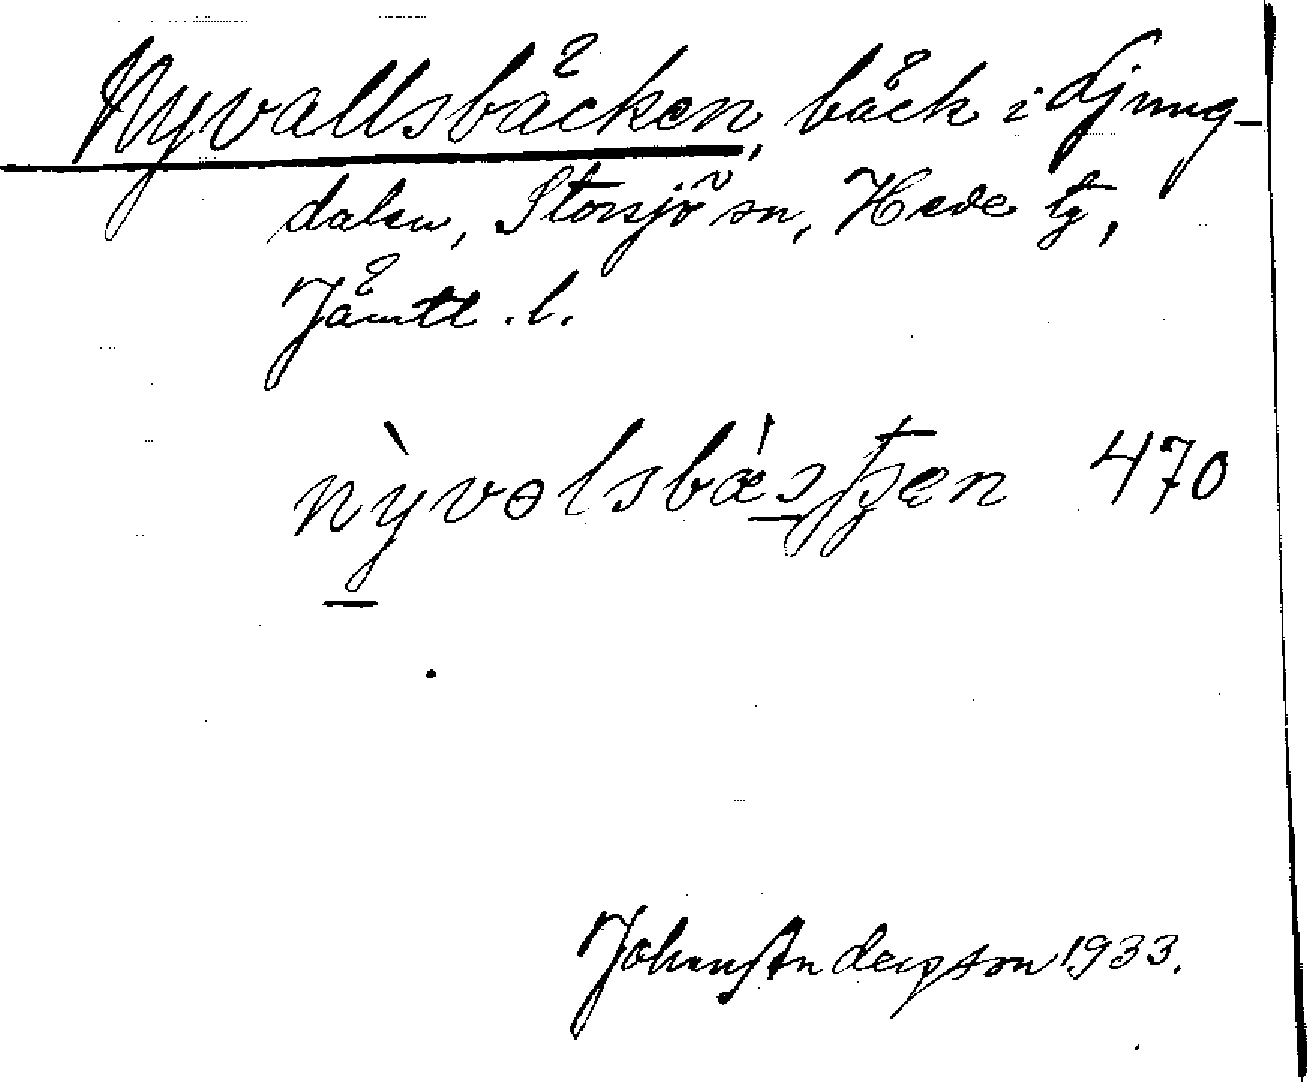 Nyvallsbäcken, bäck i Ljung-
dalen, Storsjö sn, Hede tg,
Jämtl. l.
470
Johan Andersson 1933.